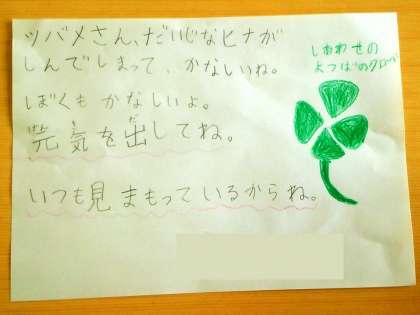 ツバメさん、だいじなヒナが
しんでしまって、かなしいね。
ぼくもかなしいよ。
元気を出してね。
いつも見まもっているからね。
しあわせの
よつばのクローバー